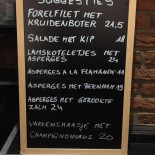 SUGGESTIES
FORELFILET MET
KRUIDENBOTER 21,5
SALADE MET KIP 18
LAMSKOTELETJES MET
ASPERGES 24
ASPERGES A LA FLAMANDE
ASPERGES MET BEENHAM 19
ASPERGES MET GEROOKTE
ZALM 24
VARKENSHAASJE MET
CHAMPIGNONSAUS 20